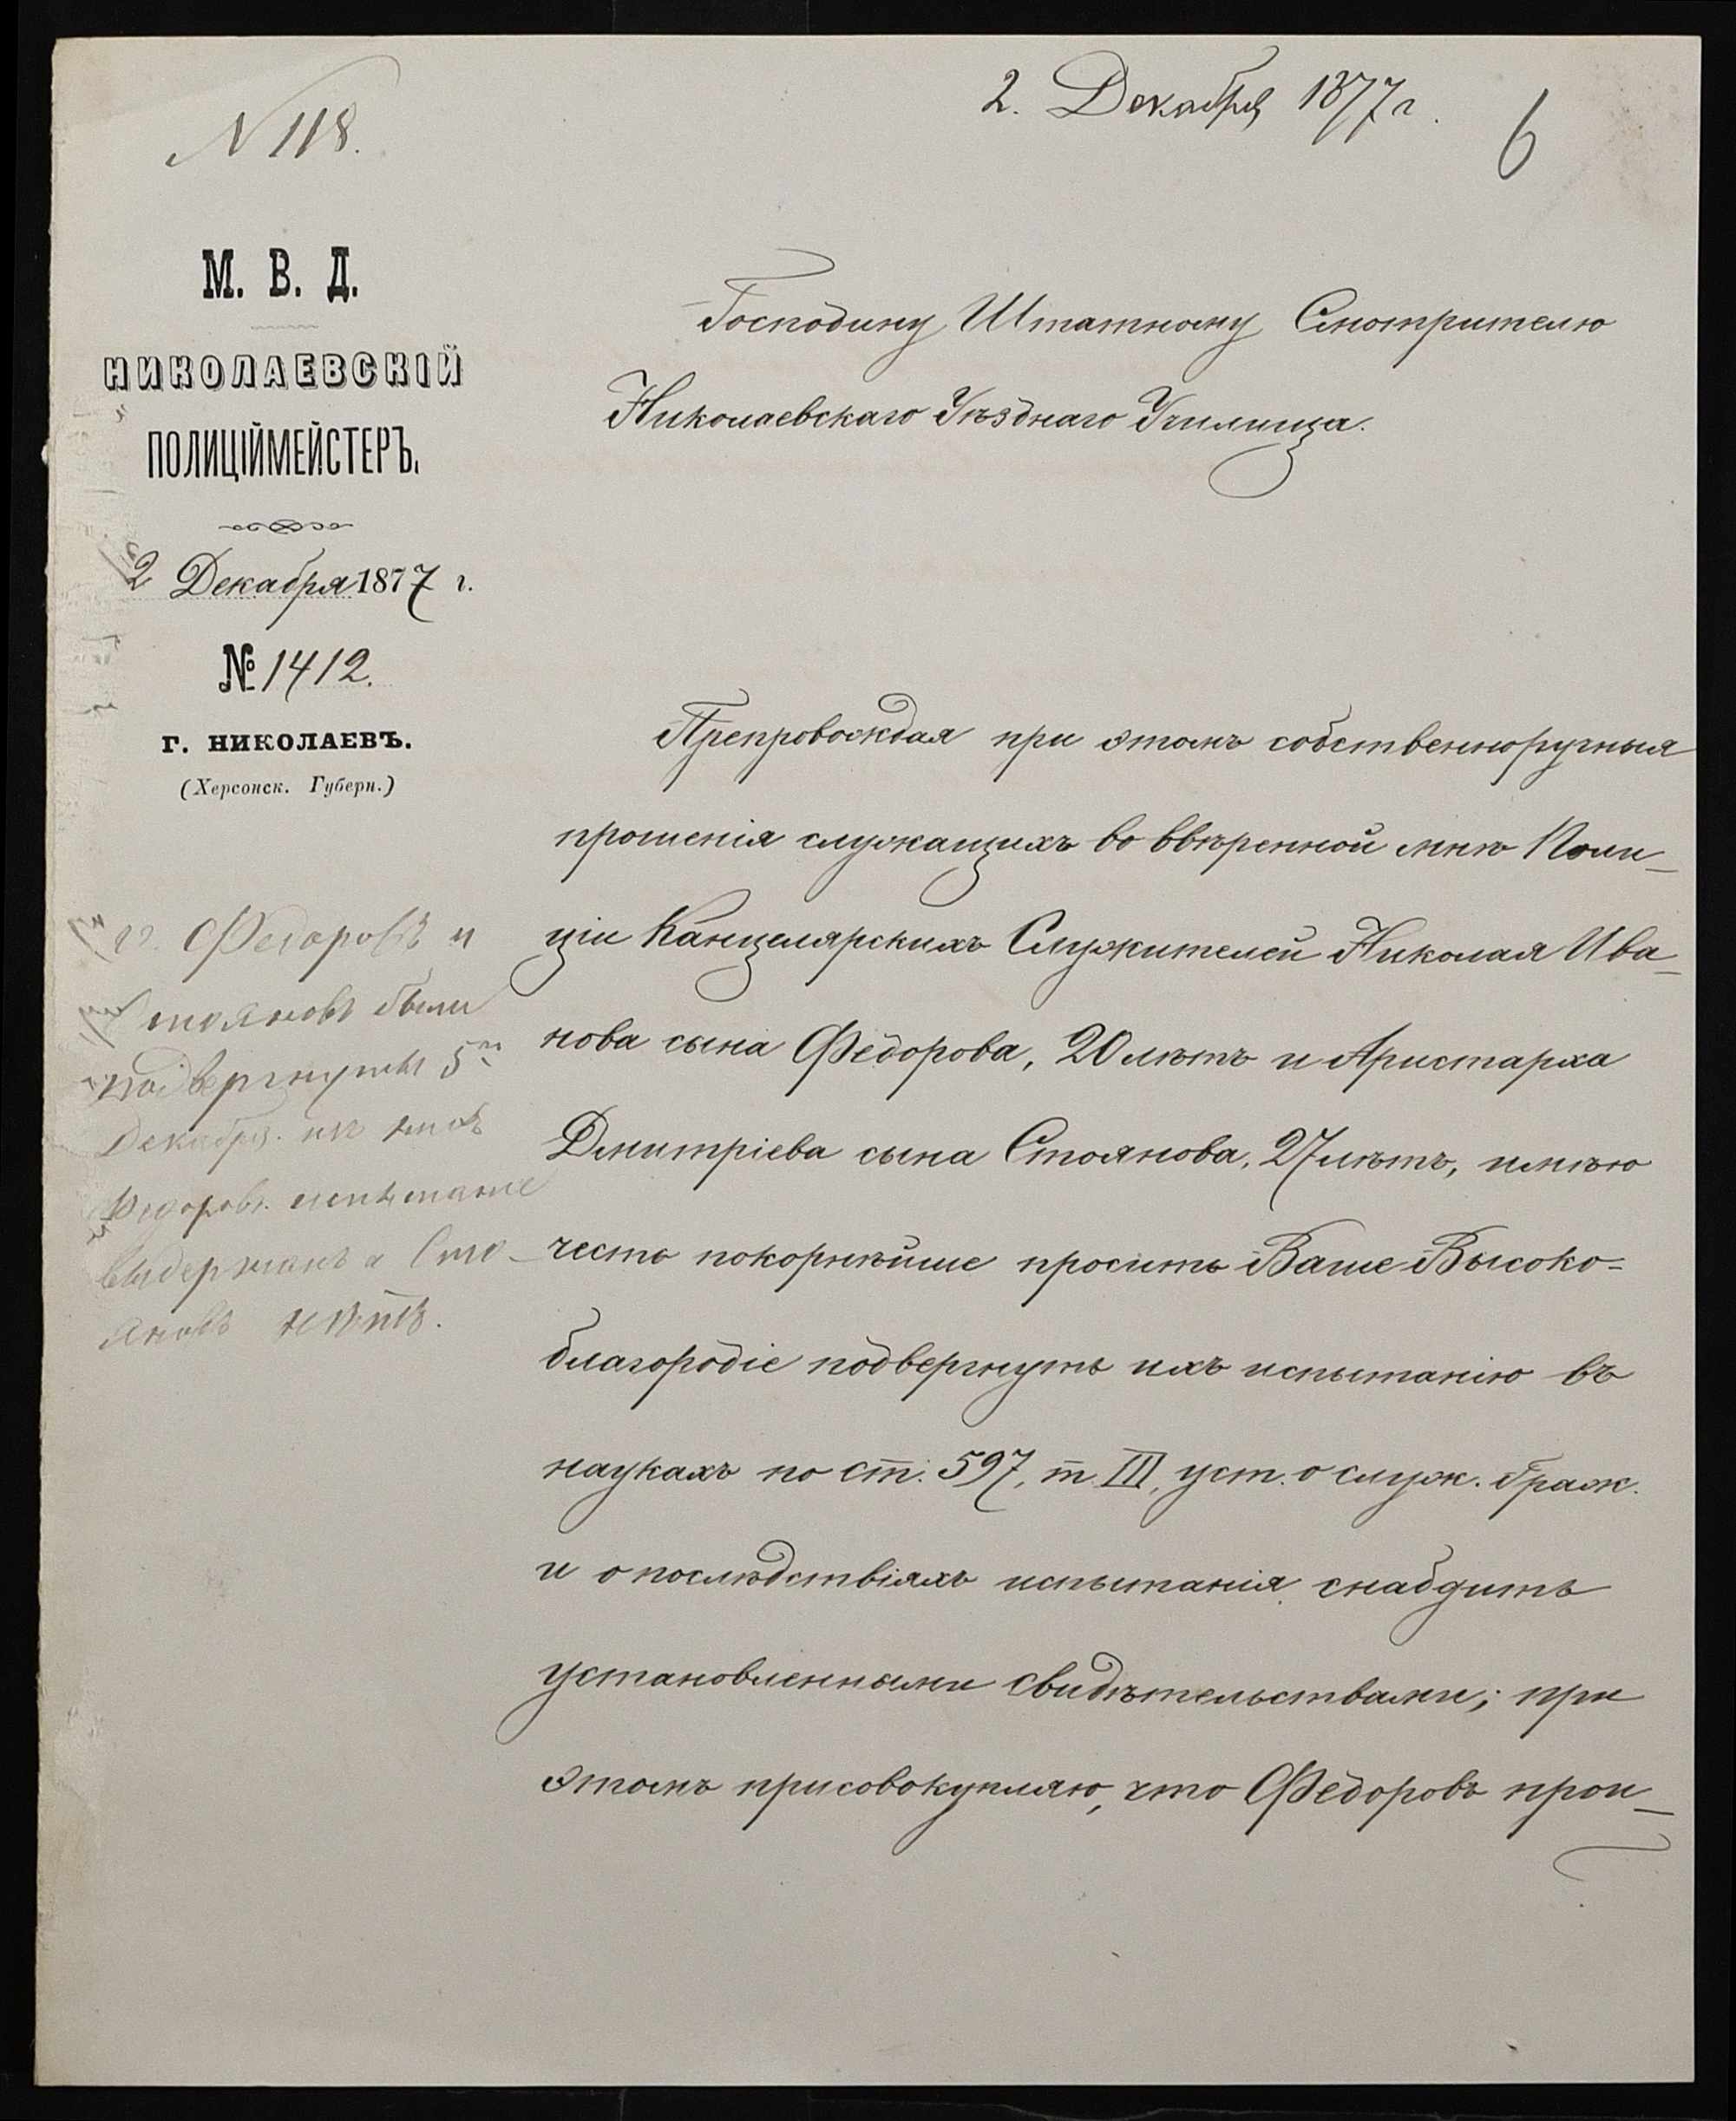 N 118.
2. Декабря 1877 г.
6
М. В. Д.
НИКОЛАЕВСКІЙ
ПОЛИЦІЙМЕЙСТЕРЪ.
2 Декабря 1877 г.
№ 1412.
Г. НИКОЛАЕВЪ.
(Херсонск. Губерн.)
Господину Штатному Смотрителю
Николаевскаго Уѣзднаго Училища.
Препровождая при этомъ собственноручныя
прошенія служащихъ во ввѣренной мнѣ Поли-
ціи Канцелярскихъ Служителей Николая Ива-
нова сына Федорова, 20 лѣтъ и Аристарха
Дмитріева сына Стоянова, 27 лѣтъ, имѣю
честь покорнѣйше просить Ваше Высоко-
благородіе подвергнуть ихъ испытанію въ
наукахъ по ст. 597, т III, уст. о служ. Граж.
и о послѣдствіяхъ испытанія снабдить
установленными свидѣтельствами; при
этомъ присовокупляю, что Федоровъ прои-
г. Федоровъ и
Стояновъ были
подвергнуты 5го
Декабря.
Федоровъ испытаніе
выдержалъ а Сто-
яновъ нѣтъ.